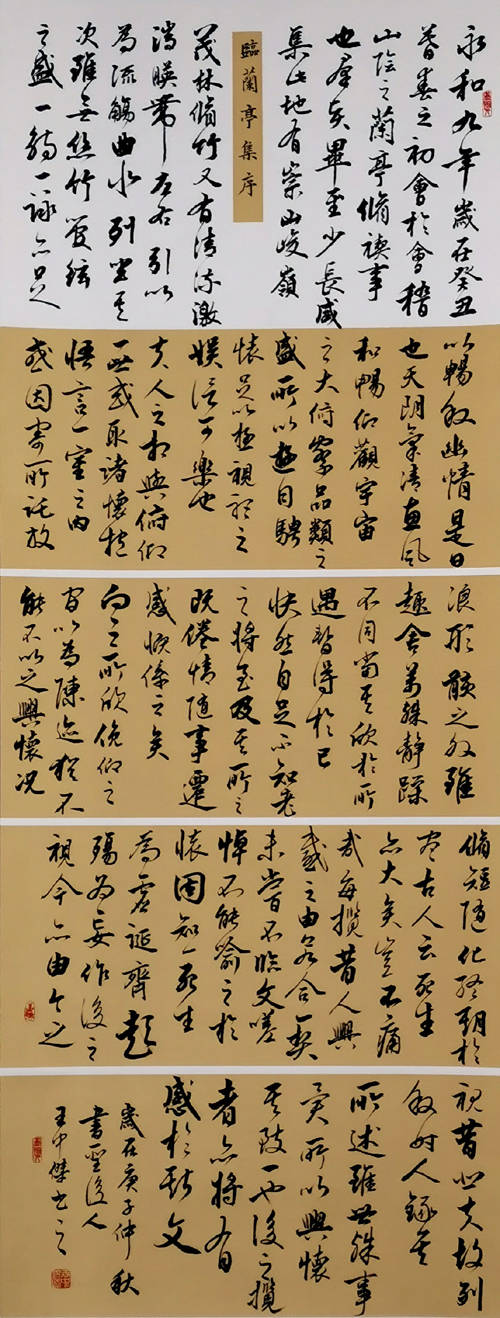 永和九年歲在癸丑
暮春之初會於會稽
山陰之蘭亭脩禊事
也羣賢畢至少長咸
集此地有崇山峻嶺
臨蘭亭集序
茂林脩竹又有清流激
湍暎帶左右引以
為流觴曲水列坐其
次雖無絲竹管弦
之盛一觴一詠亦足
以暢敘幽情是日
也天朗氣清惠風
和暢仰觀宇宙
之大俯察品類之
盛所以遊目騁
懷足以極視聽之
娛信可樂也
夫人之相與俯仰
一世或取諸懷抱
悟言一室之內
或因寄所託放
浪形骸之外雖
趣舍萬殊靜躁
不同當其欣於所
遇暫得於己
快然自足不知老
之將至及其所之
既倦情隨事遷
感慨係之矣
向之所欣俛仰之
間以為陳迹猶不
能不以之興懷況
脩短隨化終期於
盡古人云死生
亦大矣豈不痛
哉每攬昔人興
感之由若合一契
未嘗不臨文嗟
悼不能喻之於
懷固知一死生
為虛誕齊彭
殤為妄作後之
視今亦由今之
視昔悲夫故列
敘時人錄其
所述雖世殊事
異所以興懷
其致一也後之攬
者亦將有
感於斯文
歲在庚子仲秋
書聖後人
王中傑書之